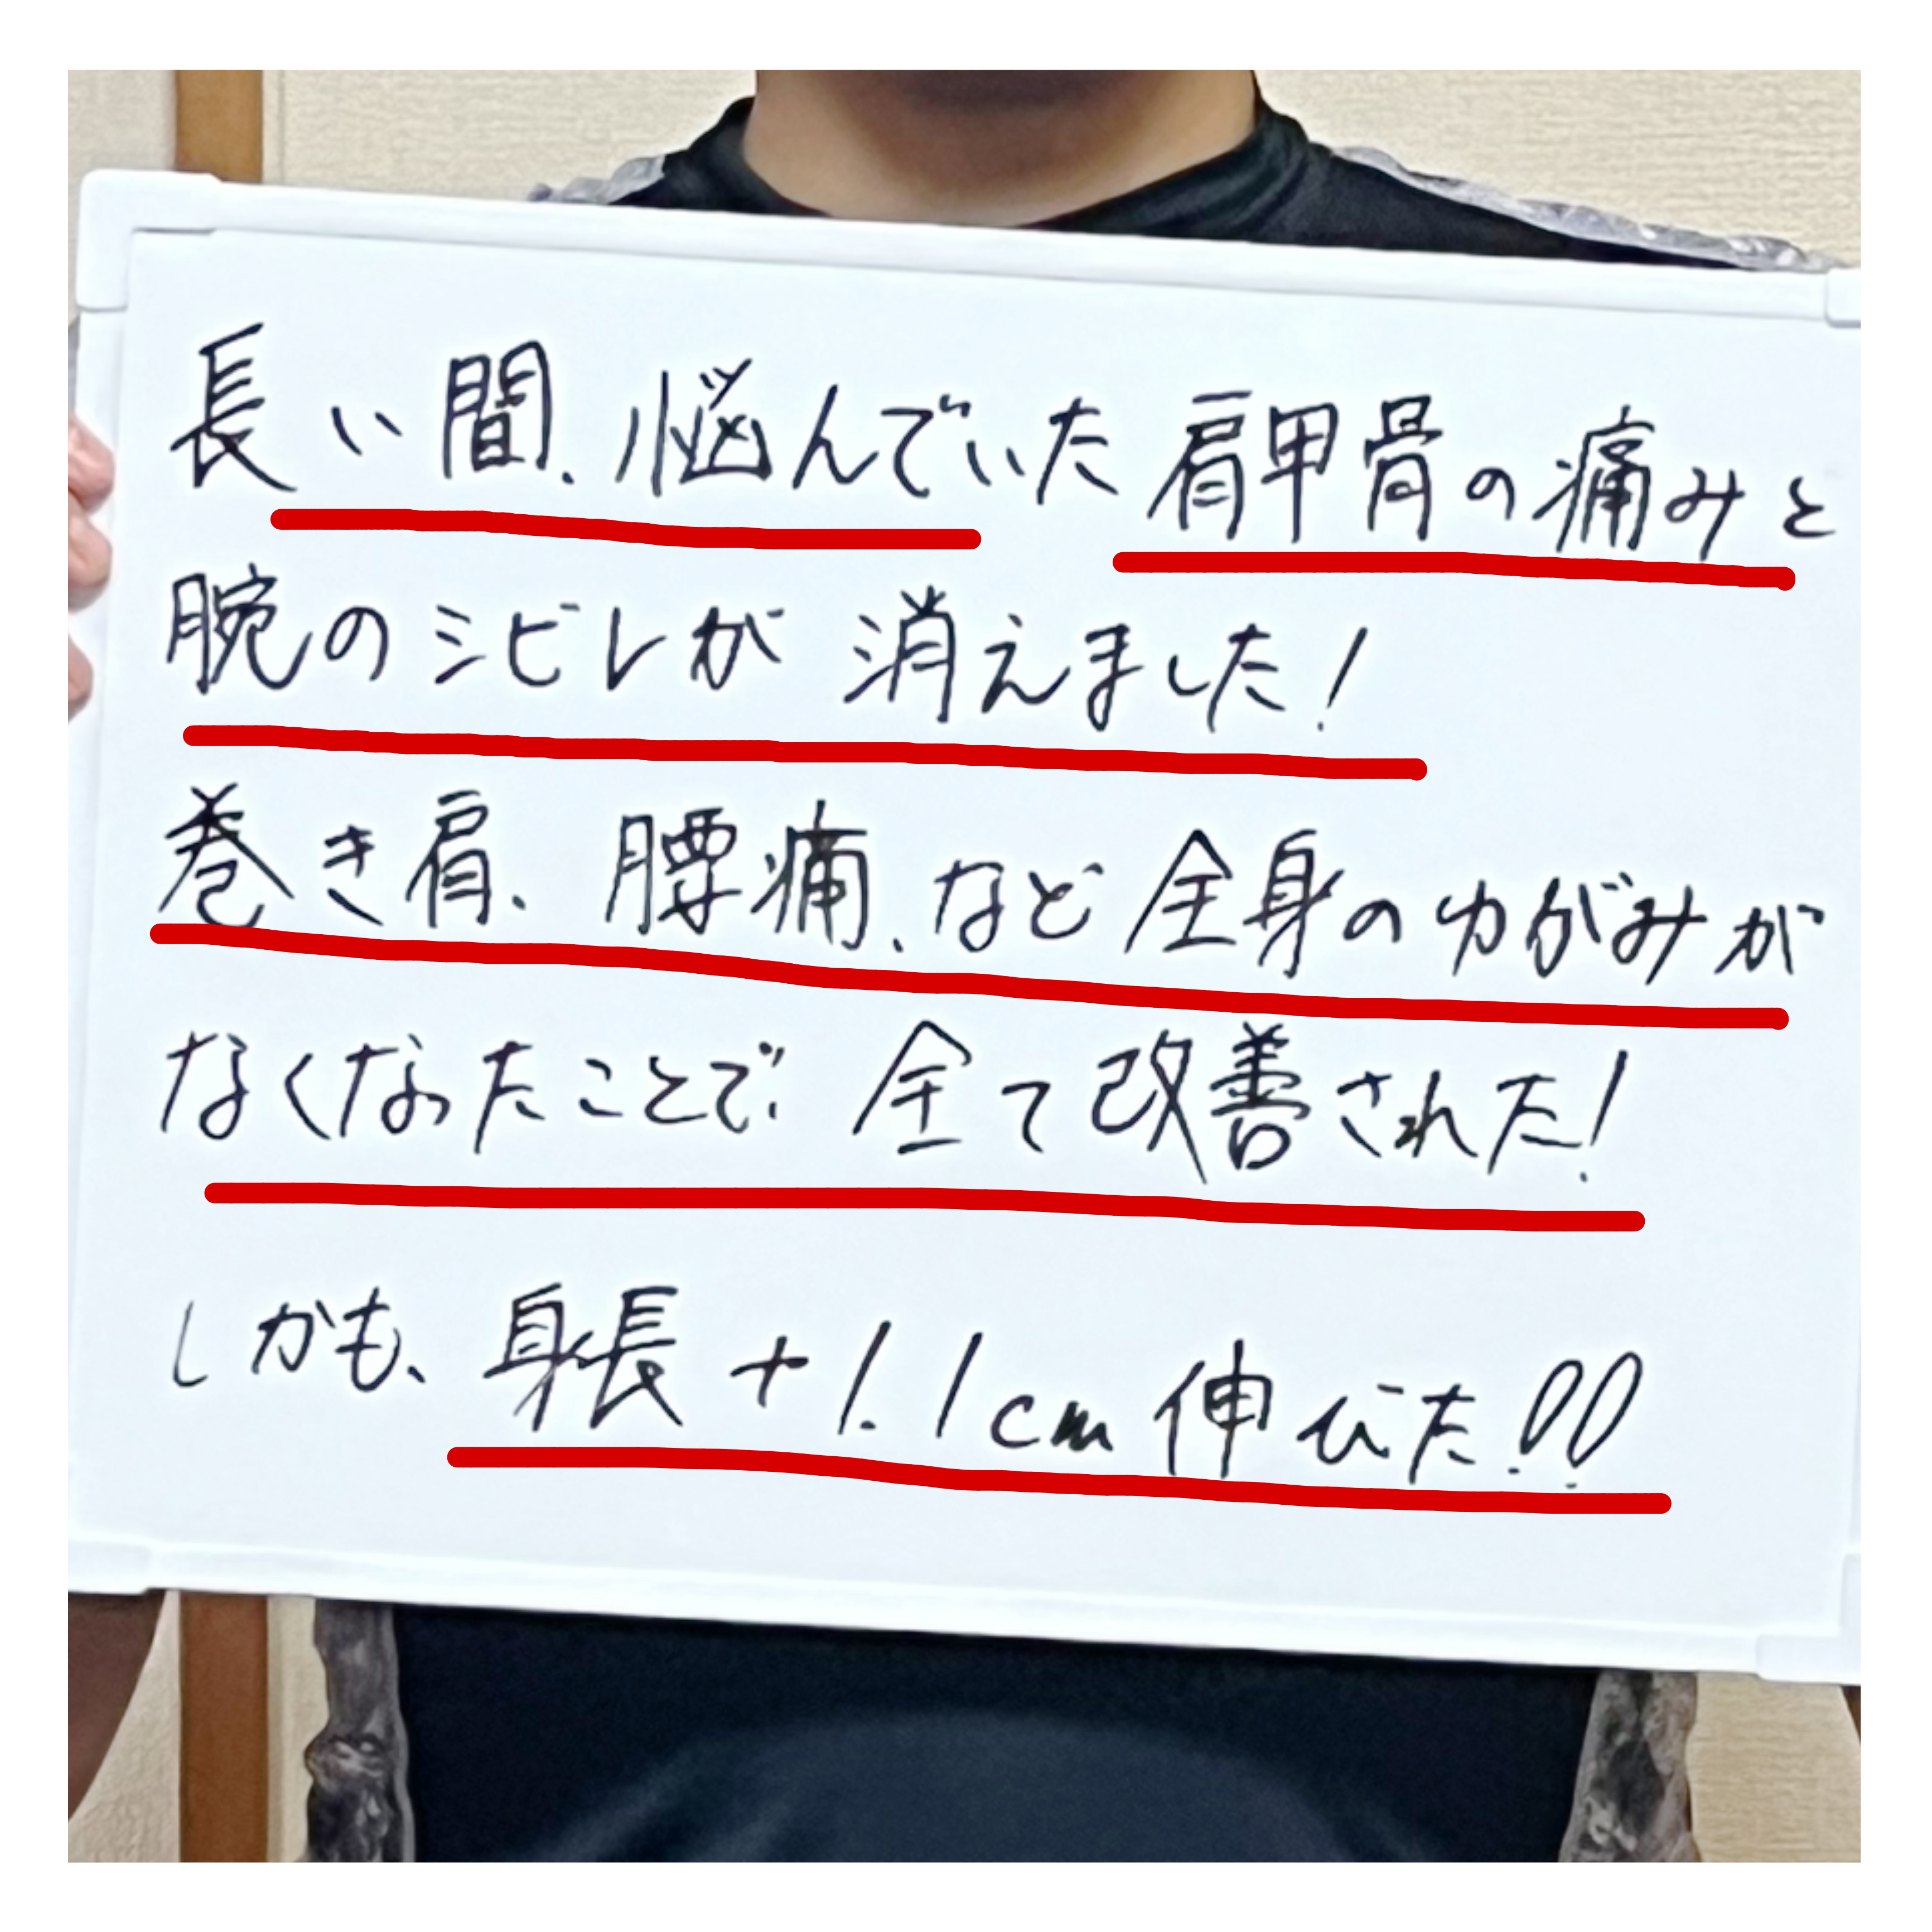 長い間、悩んでいた肩甲骨の痛みと
腕のシビレが消えました!
巻き肩、腰痛、など全身のゆがみが
なくなったことで、全て改善された!
しかも、身長+1.1cm伸びた!!